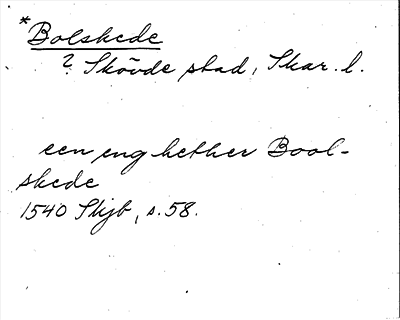 *Bolskede
? Skövde stad, Skar. l.
een eng hether Bool-
skede
1540 Skjb, s. 58.